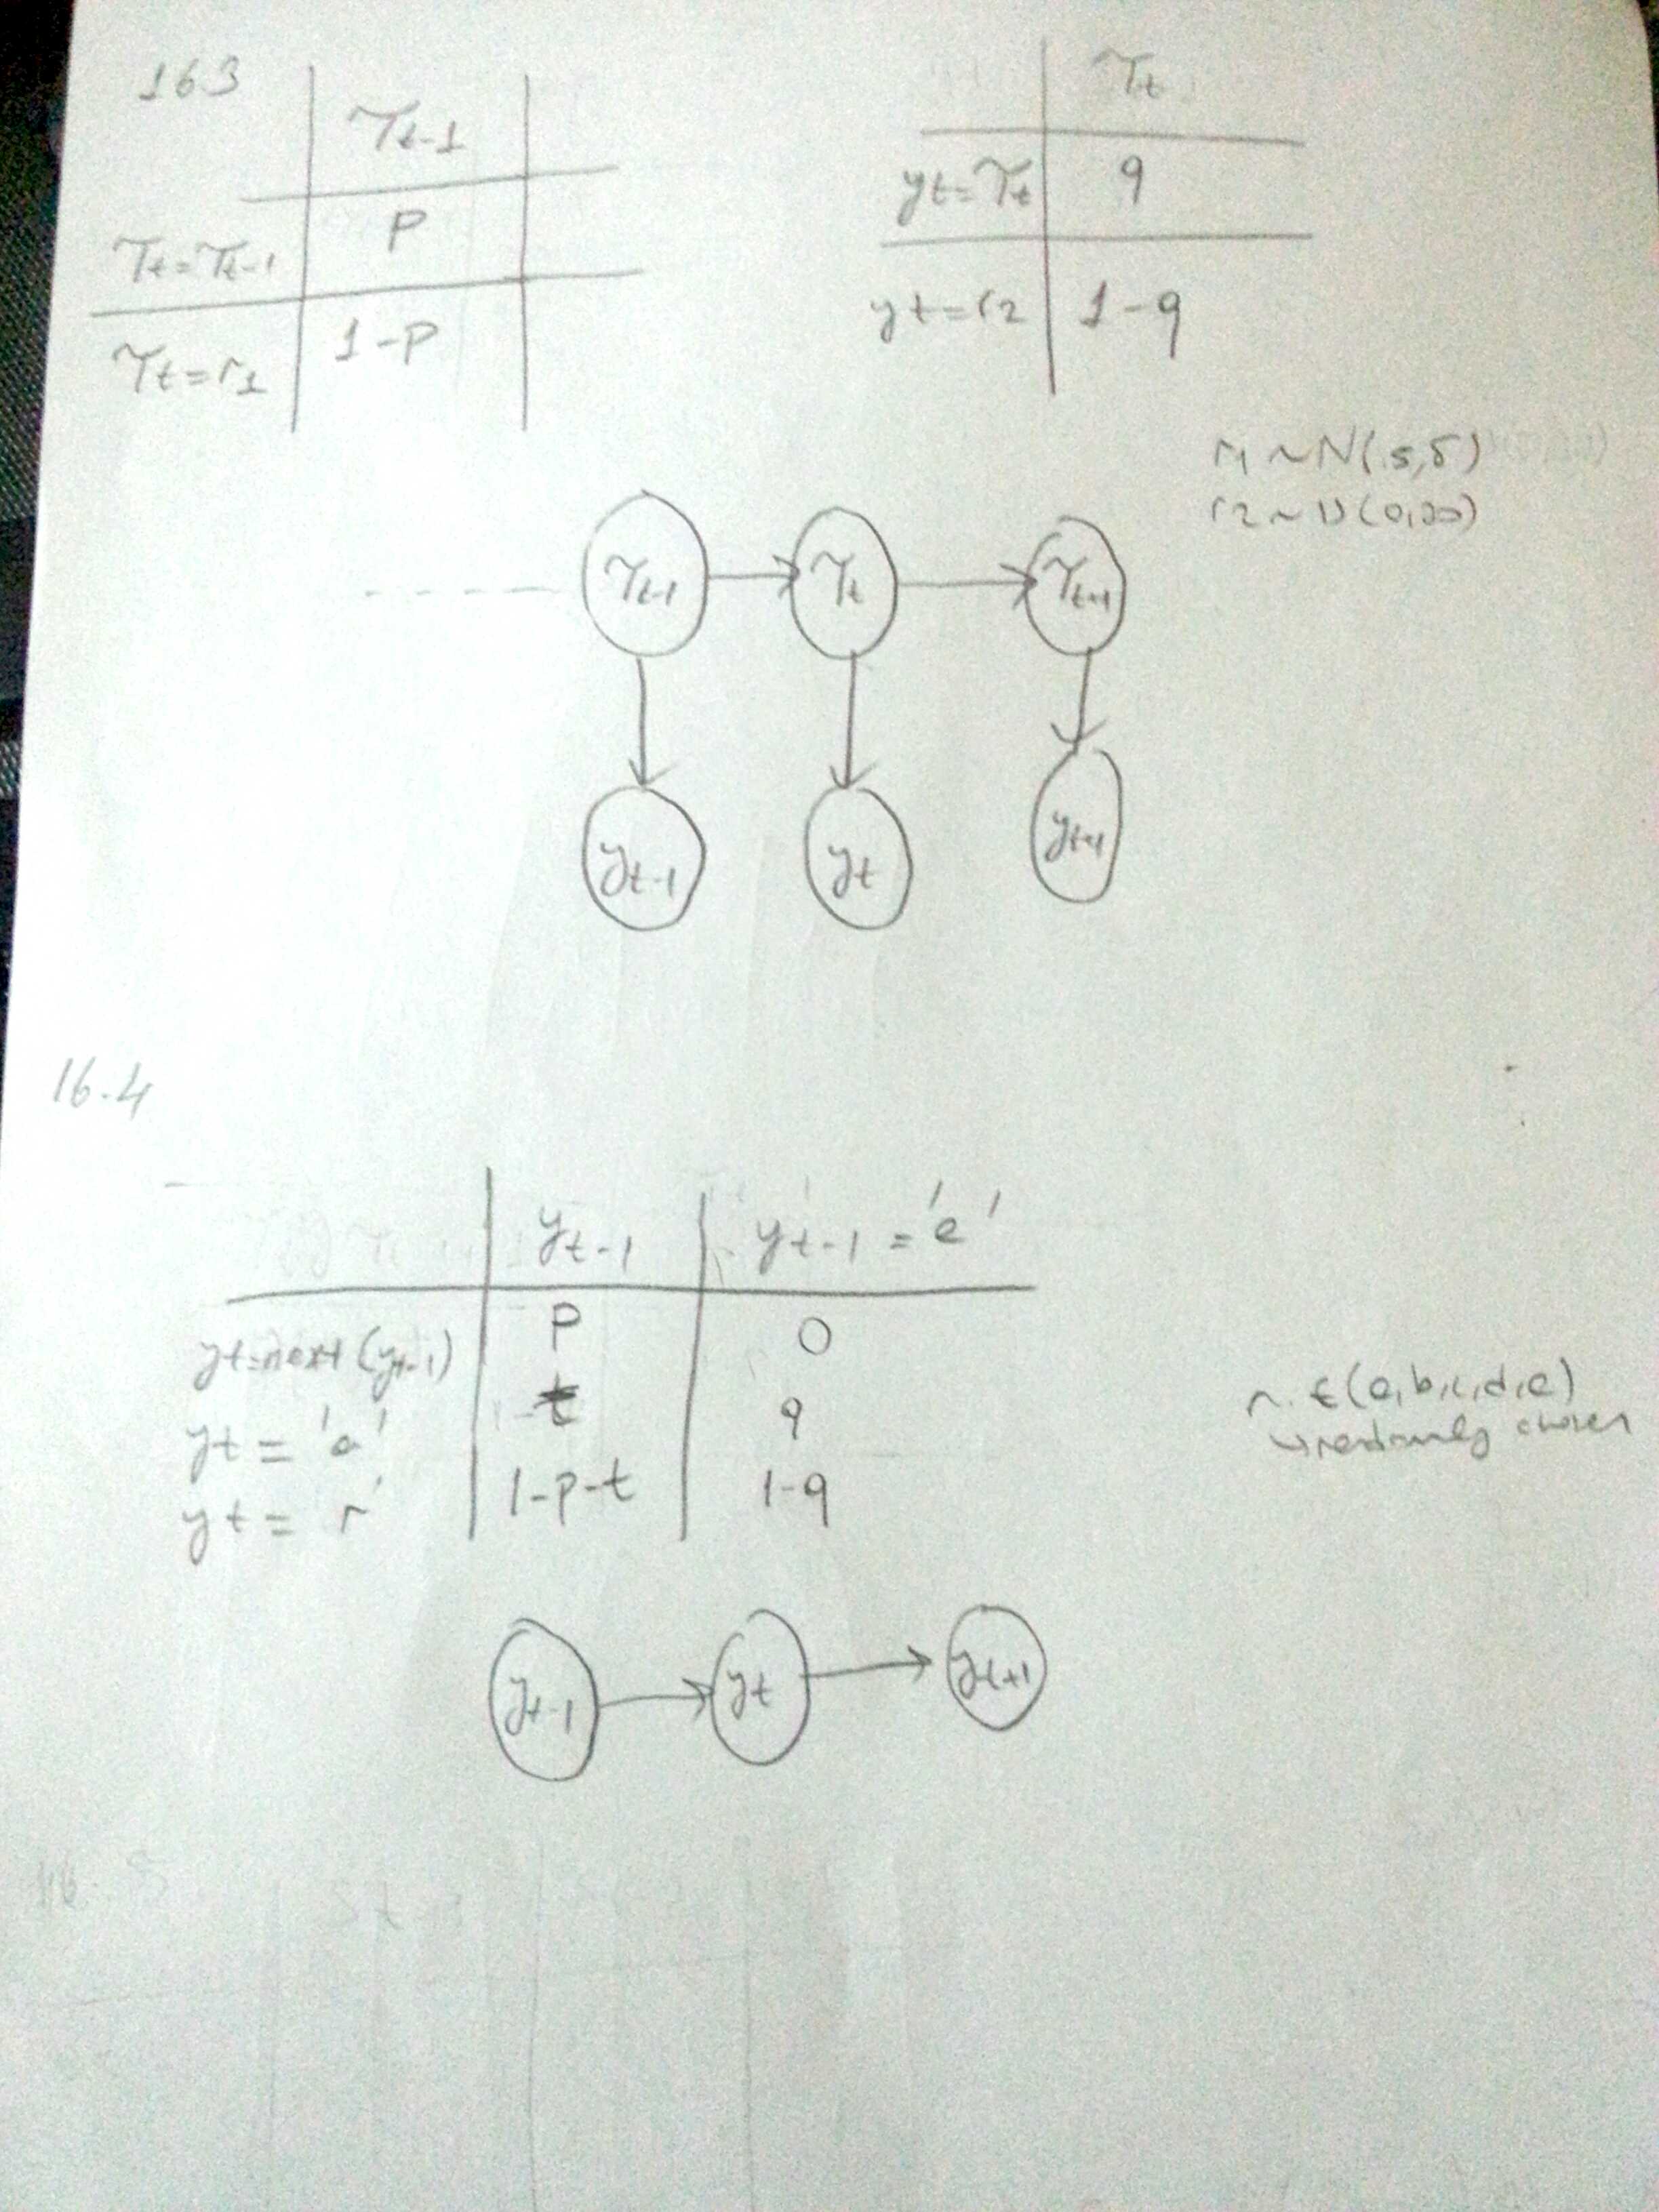 163
τt-1
P
τt=τt-1
1-P
τt=r1
τt
yt=τt q
yt=r2 1-q
r1 ~ N(.5,5)
r2 ~ N(0,20)
τt-1 τt τt+1
yt-1 yt yt+1
16.4
yt-1 yt-1 = 'e'
yt=next(yt-1) P 0
yt = 'a' t q
yt = r 1-p-t 1-q
r. ∈(a,b,c,d,e)
↳randomly chosen
yt-1 yt yt+1